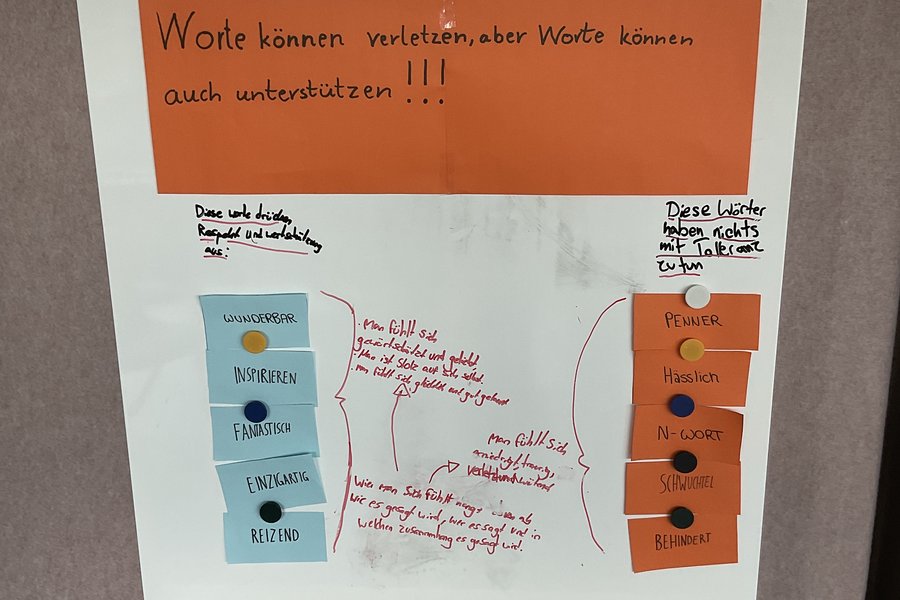 Worte können verletzen, aber Worte können
auch unterstützen !!!
Diese worte drücken
Respekt und wertschätzung
aus:
WUNDERBAR
INSPIRIEREN
FANTASTISCH
EINZIGARTIG
REIZEND
- Man fühlt sich
gewertschätzt und geliebt.
- Man ist Stolz auf sich selbst.
- man fühlt sich glücklich und gut gelaunt
Man fühlt sich
erniedrigt, traurig,
verletzt und wütend
Wie man sich fühlt hängt davon ab
wie es gesagt wird, wer es sagt und in
welchen zusammenhang es gesagt wird.
Diese Wörter
haben nichts
mit Toleranz
zu tun
PENNER
Hässlich
N-WORT
SCHWUCHTEL
BEHINDERT